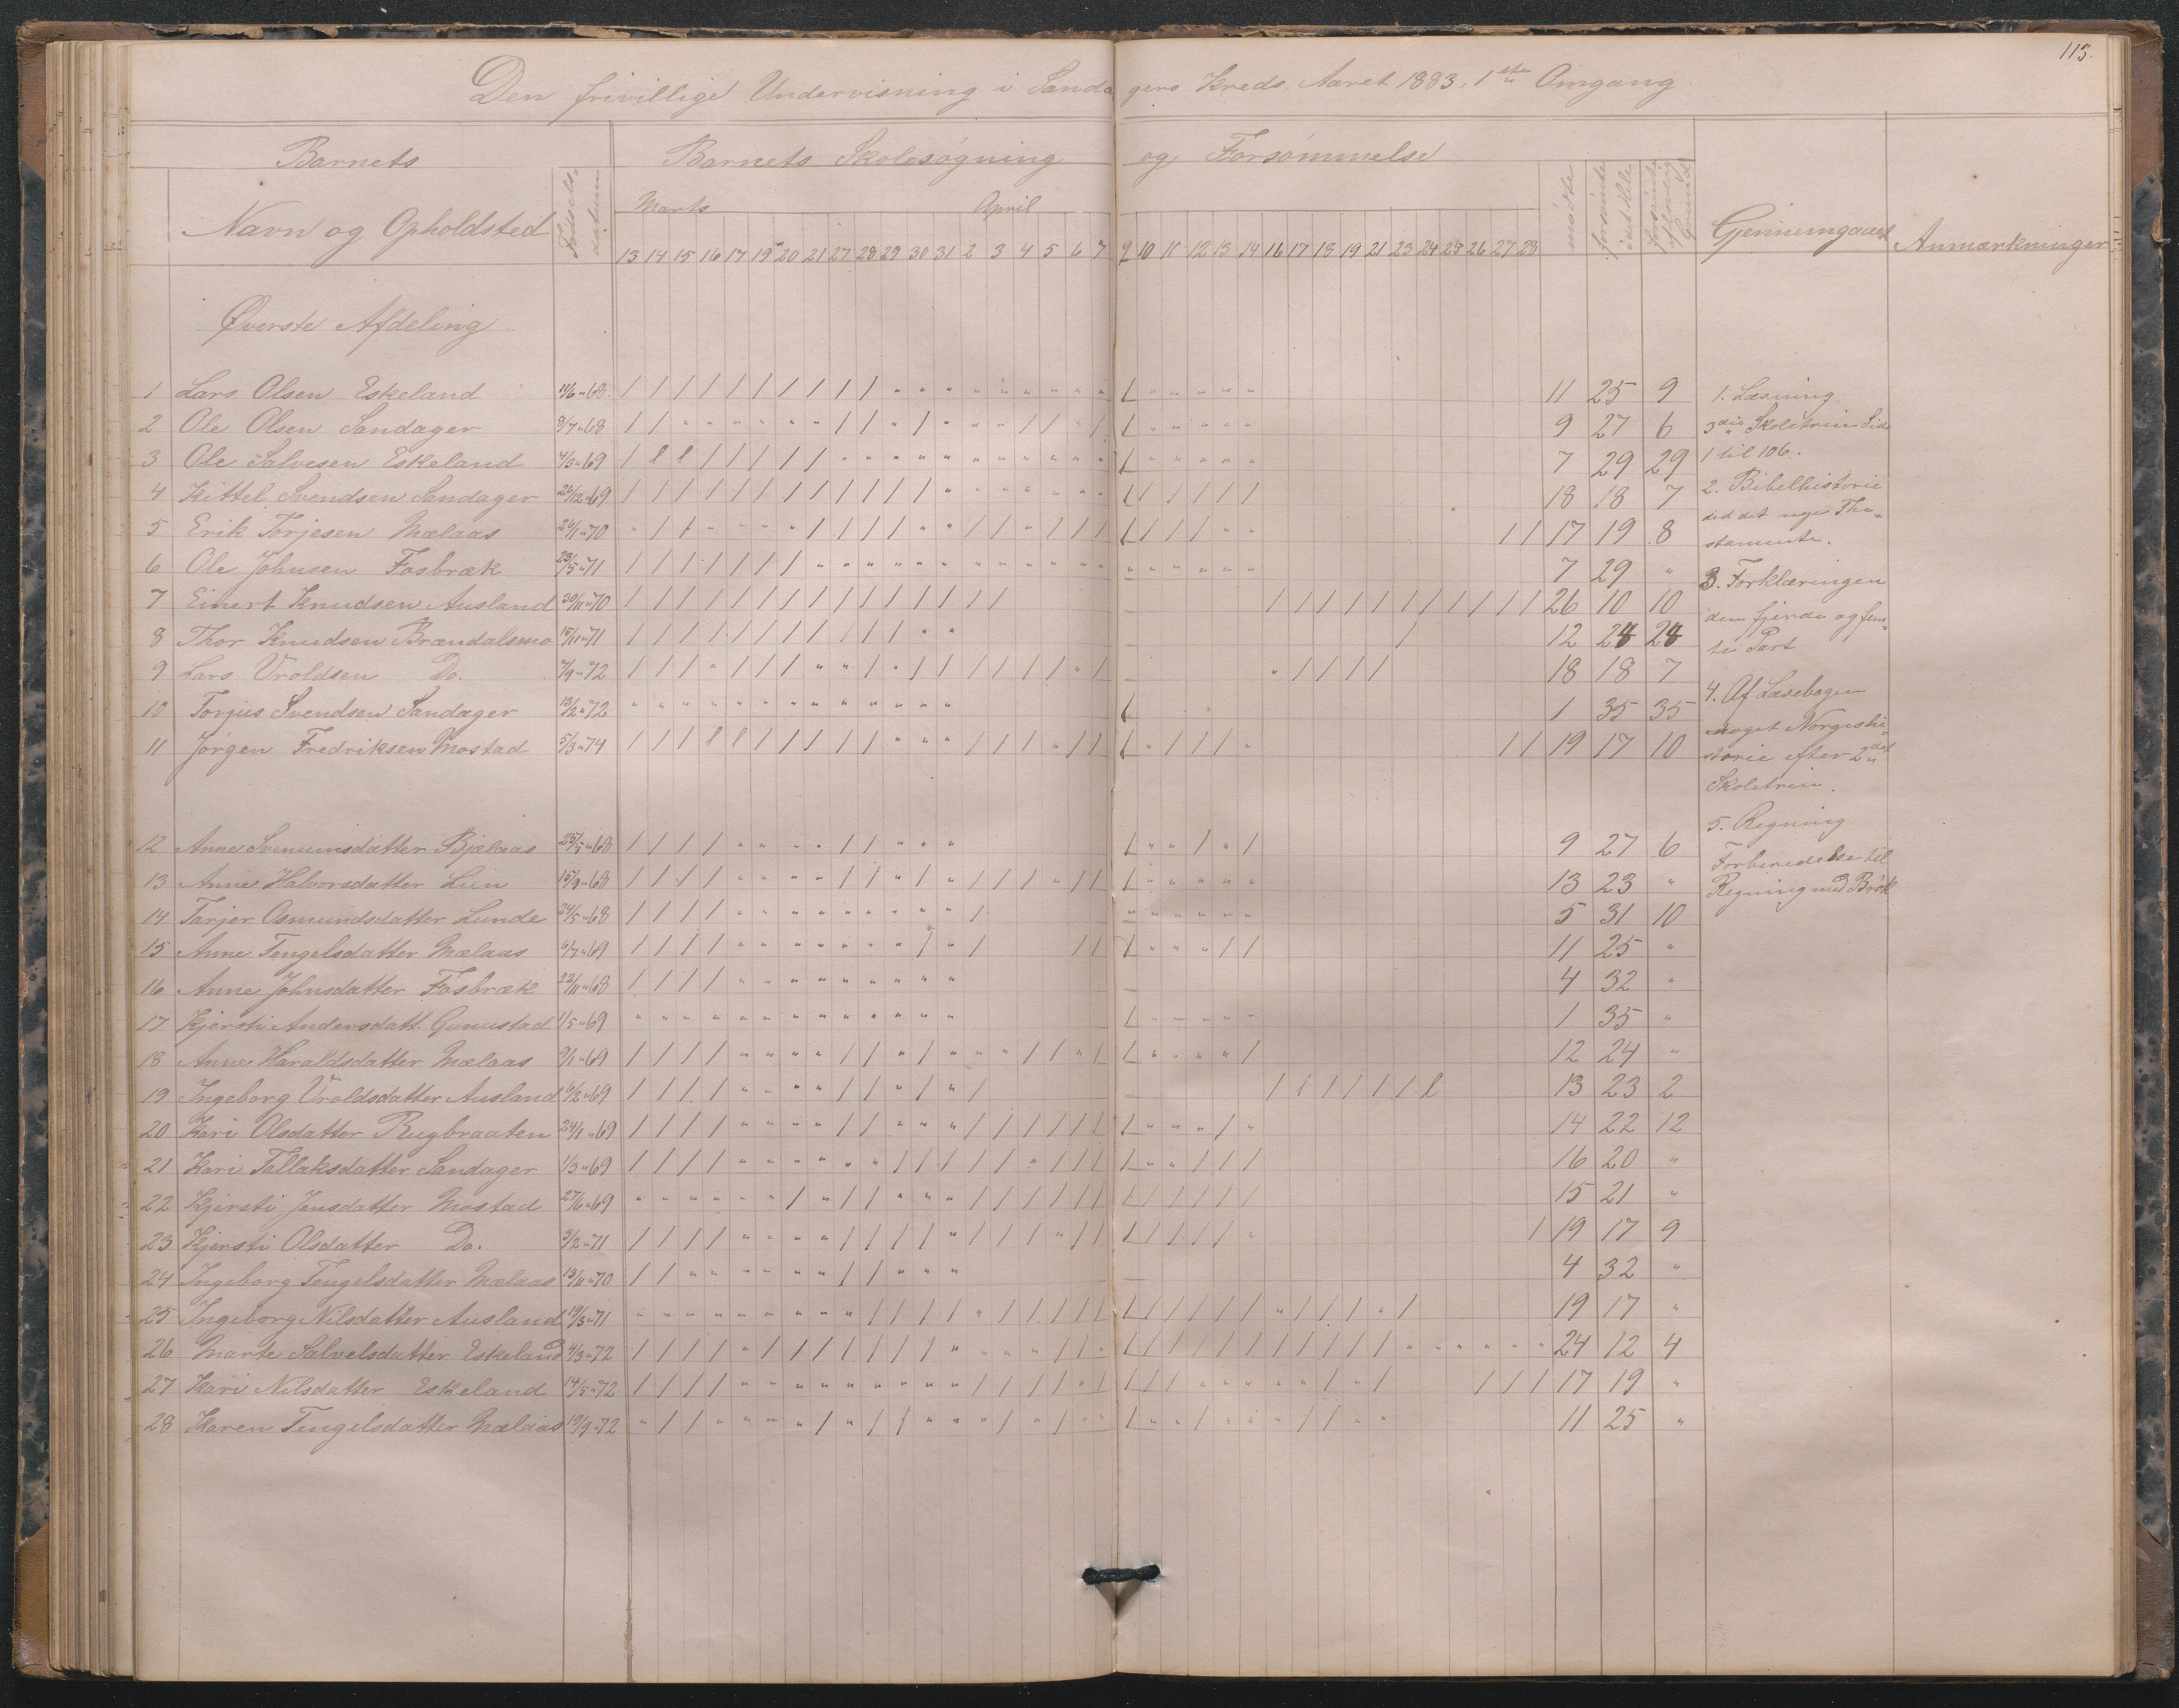 113.
Den frivillige Undervisning i Sandagers Kreds Aaret 1883. 1ste Omgang
Barnets Barnets Skolesøgning og Forsømmelse
Navn og Opholdsted Fødselsdatum Marts April mødte forsømte i det Hele forsømte af lovlig Grund Gjennemgaaet Anmærkninger
13 14 15 16 17 19 20 21 27 28 29 30 31 2 3 4 5 6 7 9 10 11 12 13 14 16 17 18 19 21 23 24 25 26 27 28
Øverste Afdeling
1 Lars Olsen Eskeland 11/6 " 68 11 25 9
2 Ole Olsen Sandager 8/7 " 68 9 27 6
3 Ole Salvesen Eskeland 4/3 " 69 7 29 29
4 Kittel Svendsen Sandager 26/12 " 69 18 18 7
5 Erik Torjesen Mælaas 26/1 " 70 17 19 8
6 Ole Johnsen Fosbræk 23/5 " 71 7 29 "
7 Einert Knudsen Ausland 30/11 " 70 26 10 10
8 Thor Knudsen Brændalsmo 15/11 " 71 12 24 24
9 Lars Vroldsen Do. 7/9 " 72 18 18 7
10 Torjus Svendsen Sandager 13/2 " 72 1 35 35
11 Jørgen Fredriksen Mostad 5/3 " 74 19 17 10
12 Anne Svenumsdatter Bjælaas 25/5 " 68 9 27 6
13 Anne Halvorsdatter Lien 15/9 " 68 13 23 "
14 Tarjer Osmundsdatter Lunde 24/5 " 68 5 31 10
15 Anne Tengelsdatter Mælaas 6/7 " 69 11 25 "
16 Anne Johnsdatter Fosbræk 22/11 " 68 4 32 "
17 Kjersti Andersdatt. Gunustad 1/5 " 69 1 35 "
18 Anne Haraldsdatter Mælaas 9/1 " 69 12 24 "
19 Ingeborg Vroldsdatter Ausland 6/2 " 69 13 23 2
20 Kari Olsdatter Rugbraaten 24/1 " 69 14 22 12
21 Kari Tallaksdatter Sandager 1/3 " 69 16 20 "
22 Kjersti Jensdatter Mostad 27/6 " 69 15 21 "
23 Kjersti Olsdatter Do. 3/2 " 71 19 17 9
24 Ingeborg Tengelsdatter Mælaas 13/11 " 70 4 32 "
25 Ingeborg Nilsdatter Ausland 19/3 " 71 19 17 "
26 Marte Salvelsdatter Eskeland 4/3 " 72 24 12 4
27 Kari Nilsdatter Eskeland 14/5 " 72 17 19 "
28 Karen Tengelsdatter Mælaas 19/9 " 72 11 25 "
1. Læsning
3die Skoletrin Side
1 til 106.
2. Bibelhistorie
det nye The-
stamente.
3. Forklæringen
den fjerde og fem-
te Part
4. Af Læsebogen
noget Norgeshi-
storie efter 2det
Skoletrin.
5. Regning
Forberedelse til
Regning med Brøk